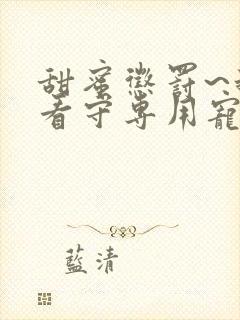 甜蜜懲罰~
看守專用寵
藍清